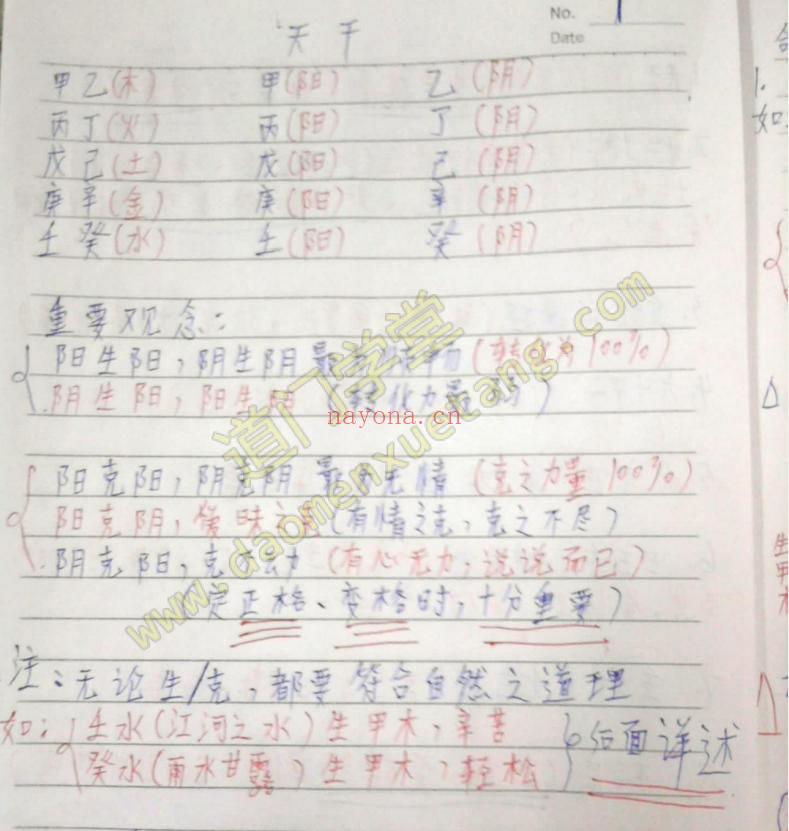 No. 1
Date
天干
甲乙(木) 甲(阳) 乙(阴)
丙丁(火) 丙(阳) 丁(阴)
戊己(土) 戊(阳) 己(阴)
庚辛(金) 庚(阳) 辛(阴)
壬癸(水) 壬(阳) 癸(阴)
重要观念:
阳生阳,阴生阴 最 (转化为100%)
阴生阳,阳生阴(转化力最弱)
nayona.cn
阳克阳,阴克阴 最为无情(克之力量100%)
阳克阴,暧昧之克(有情之克,克之不尽)
阴克阳,克 力(有心无力,说说而已)
定正格、变格时,十分重要)
注:无论生/克,都要符合自然之道理
如:壬水(江河之水)生甲木,辛苦
癸水(雨水甘露)生甲木,轻松
后面详述
道门学堂
www.daomenxuetang.com
如
生
甲
木